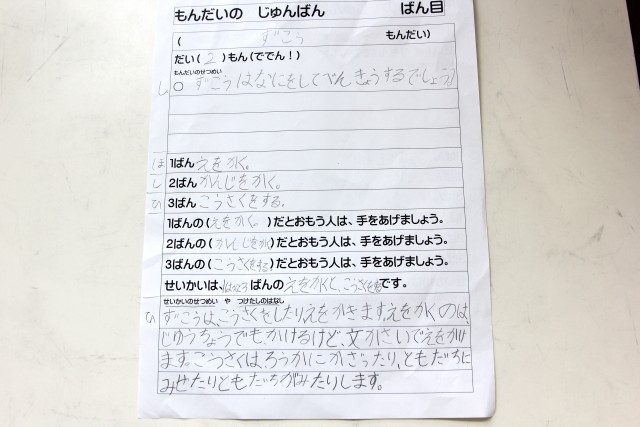 もんだいの じゅんばん ばん目
( ずこう もんだい)
だい(2)もん(ででん!)
もんだいのせつめい
し ○ ずこうはなにをしてべんきょうするでしょう!
ほ 1ばん えをかく。
し 2ばん かんじをかく。
ひ 3ばん こうさくをする。
1ばんの(えをかく。)だとおもう人は、手をあげましょう。
2ばんの(かんじをかく)だとおもう人は、手をあげましょう。
3ばんの(こうさくをする)だとおもう人は、手をあげましょう。
せいかいは、ばんの えをかくと、こうさくです。
せいかいのせつめい や つけたしのはなし
ひ ずこうは、こうさくをしたりえをかきます。えをかくのは、
じゆうちょうでもかけるけど、文かさいでえをかき
ます。こうさくは、ろうかにかざったり、ともだちに
みせたりともだちがみたりします。